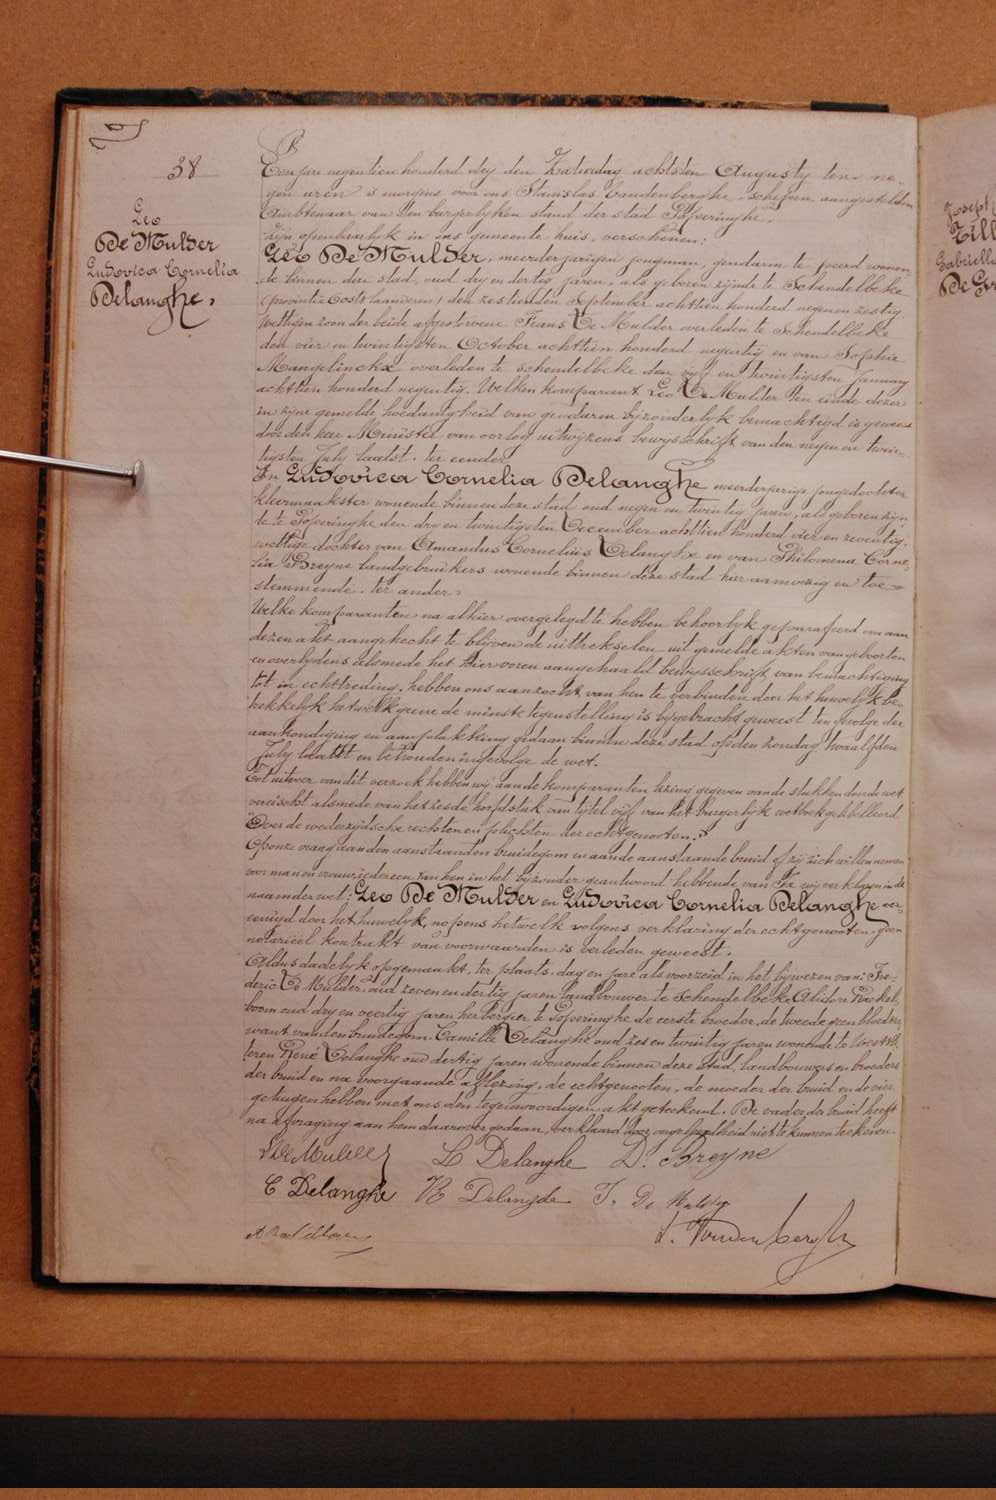 38
Leo
De Mulder
Ludovica Cornelia
Delanghe.
Een jare negentien honderd dry den Zaturdag achtsten Augusty ten ne-
gen uren 's morgens voor ons Stanislas Vandenberghe, schepen, aangestelden
Ambtenaar van den burgerlyken stand der stad Poperinghe.
Zijn openbaarlyk in ons gemeente huis, verschenen:
Leo De Mulder, meerderjarigen jongman, gendarm te peerd wonen-
de binnen deze stad, oud dry en dertig jaren, als geboren zijnde te Schendelbeke
(provintie Oostvlaanderen) den zestienden September achttien honderd negen en zestig
wettigen zoon der beide afgestorvene Frans De Mulder overleden te Schendelbeke
den vier en twintigsten October achttien honderd negentig en van Sophie
Mangelinckx overleden te Schendelbeke den vijf en twintigsten January
achttien honderd negentig. Welken komparant Leo De Mulder ten einde dezer
in zyne gemelde hoedanigheid van gendarm bijzonderlyk bemachtigd is geweest
door den heer Minister van oorlog uitwijzens bewysschrift van den negen en twin-
tigsten July laatst. ter eender
En Ludovica Cornelia Delanghe meerderjarige jongedochter
kleermaakster wonende binnen deze stad oud negen en twintig jaren, als geboren zijn-
de te Poperinghe den dry en twintigsten December achttien honderd vier en zeventig,
wettige dochter van Amandus Cornelius Delanghe en van Philomena Corne-
lia Breyne landgebruikers wonende binnen deze stad hier aanwezig en toe-
stemmende. ter ander.
Welke komparanten na alhier overgelegd te hebben behoorlyk geparafeerd om aan
dezen akt aangehecht te blijven de uittrekselen uit gemelde akten van geboorten
en overlydens alsmede het hier voren aangehaald bewysschrift van bemachtiging
tot in echttreding, hebben ons aanzocht van hen te verbinden door het huwelyk be-
trekkelyk hetwelk geene de minste tegenstelling is bygebracht geweest ten gevolge der
aankondiging en aanplakking gedaan binnen deze stad op den zondag twaalfden
July laatst en behouden ingevolge de wet.
Tot uitvoer van dit verzoek hebben wij aan de komparanten lezing gegeven van de stukken door de wet
vereischt alsmede van het zesde hoofdstuk van tytel vijf van het burgerlyk wetboek gelibelleerd
Over de wederzijdsche rechten en plichten der echtgenooten.
Op onze vraag aan den aanstaanden bruidegom en aan de aanstaande bruid of zij zich willen nemen
voor man en vrouw, iedereen van hen in het byzonder geantwoord hebbende van Ja wij verklaren in de
naam der wet: Leo De Mulder en Ludovica Cornelia Delanghe ver-
eenigd door het huwelyk, nopens hetwelk volgens verklaring der echtgenooten, geen
notarieel kontrakt van voorwaarden is verleden geweest.
Aldus dadelyk opgemaakt, ter plaats, dag en jare als voorzeid in het bywezen van: Fre-
deric De Mulder, oud zeven en dertig jaren landbouwer te Schendelbeke, Alidore
oud dry en veertig jaren herbergier te Poperinghe de eerste broeder, de tweede geen bloedver-
want van den bruidegom. Camille Delanghe oud zes en twintig jaren wonende te
René Delanghe oud dertig jaren wonende binnen deze stad, landbouwers en broeders
der bruid en na voorgaande aflezing, de echtgenooten, de moeder der bruid en de vier
getuigen hebben met ons den tegenwoordigen akt geteekend. De vader der bruid heeft
na afvraging aan hem daarover gedaan, verklaard door ongeleerdheid niet te kunnen teekenen.
L De Mulder L Delanghe D. Breyne
C Delanghe R Delanghe F. De Mulder
S. Vandenberghe
Joseph
Till
Gabrielle
De Gr